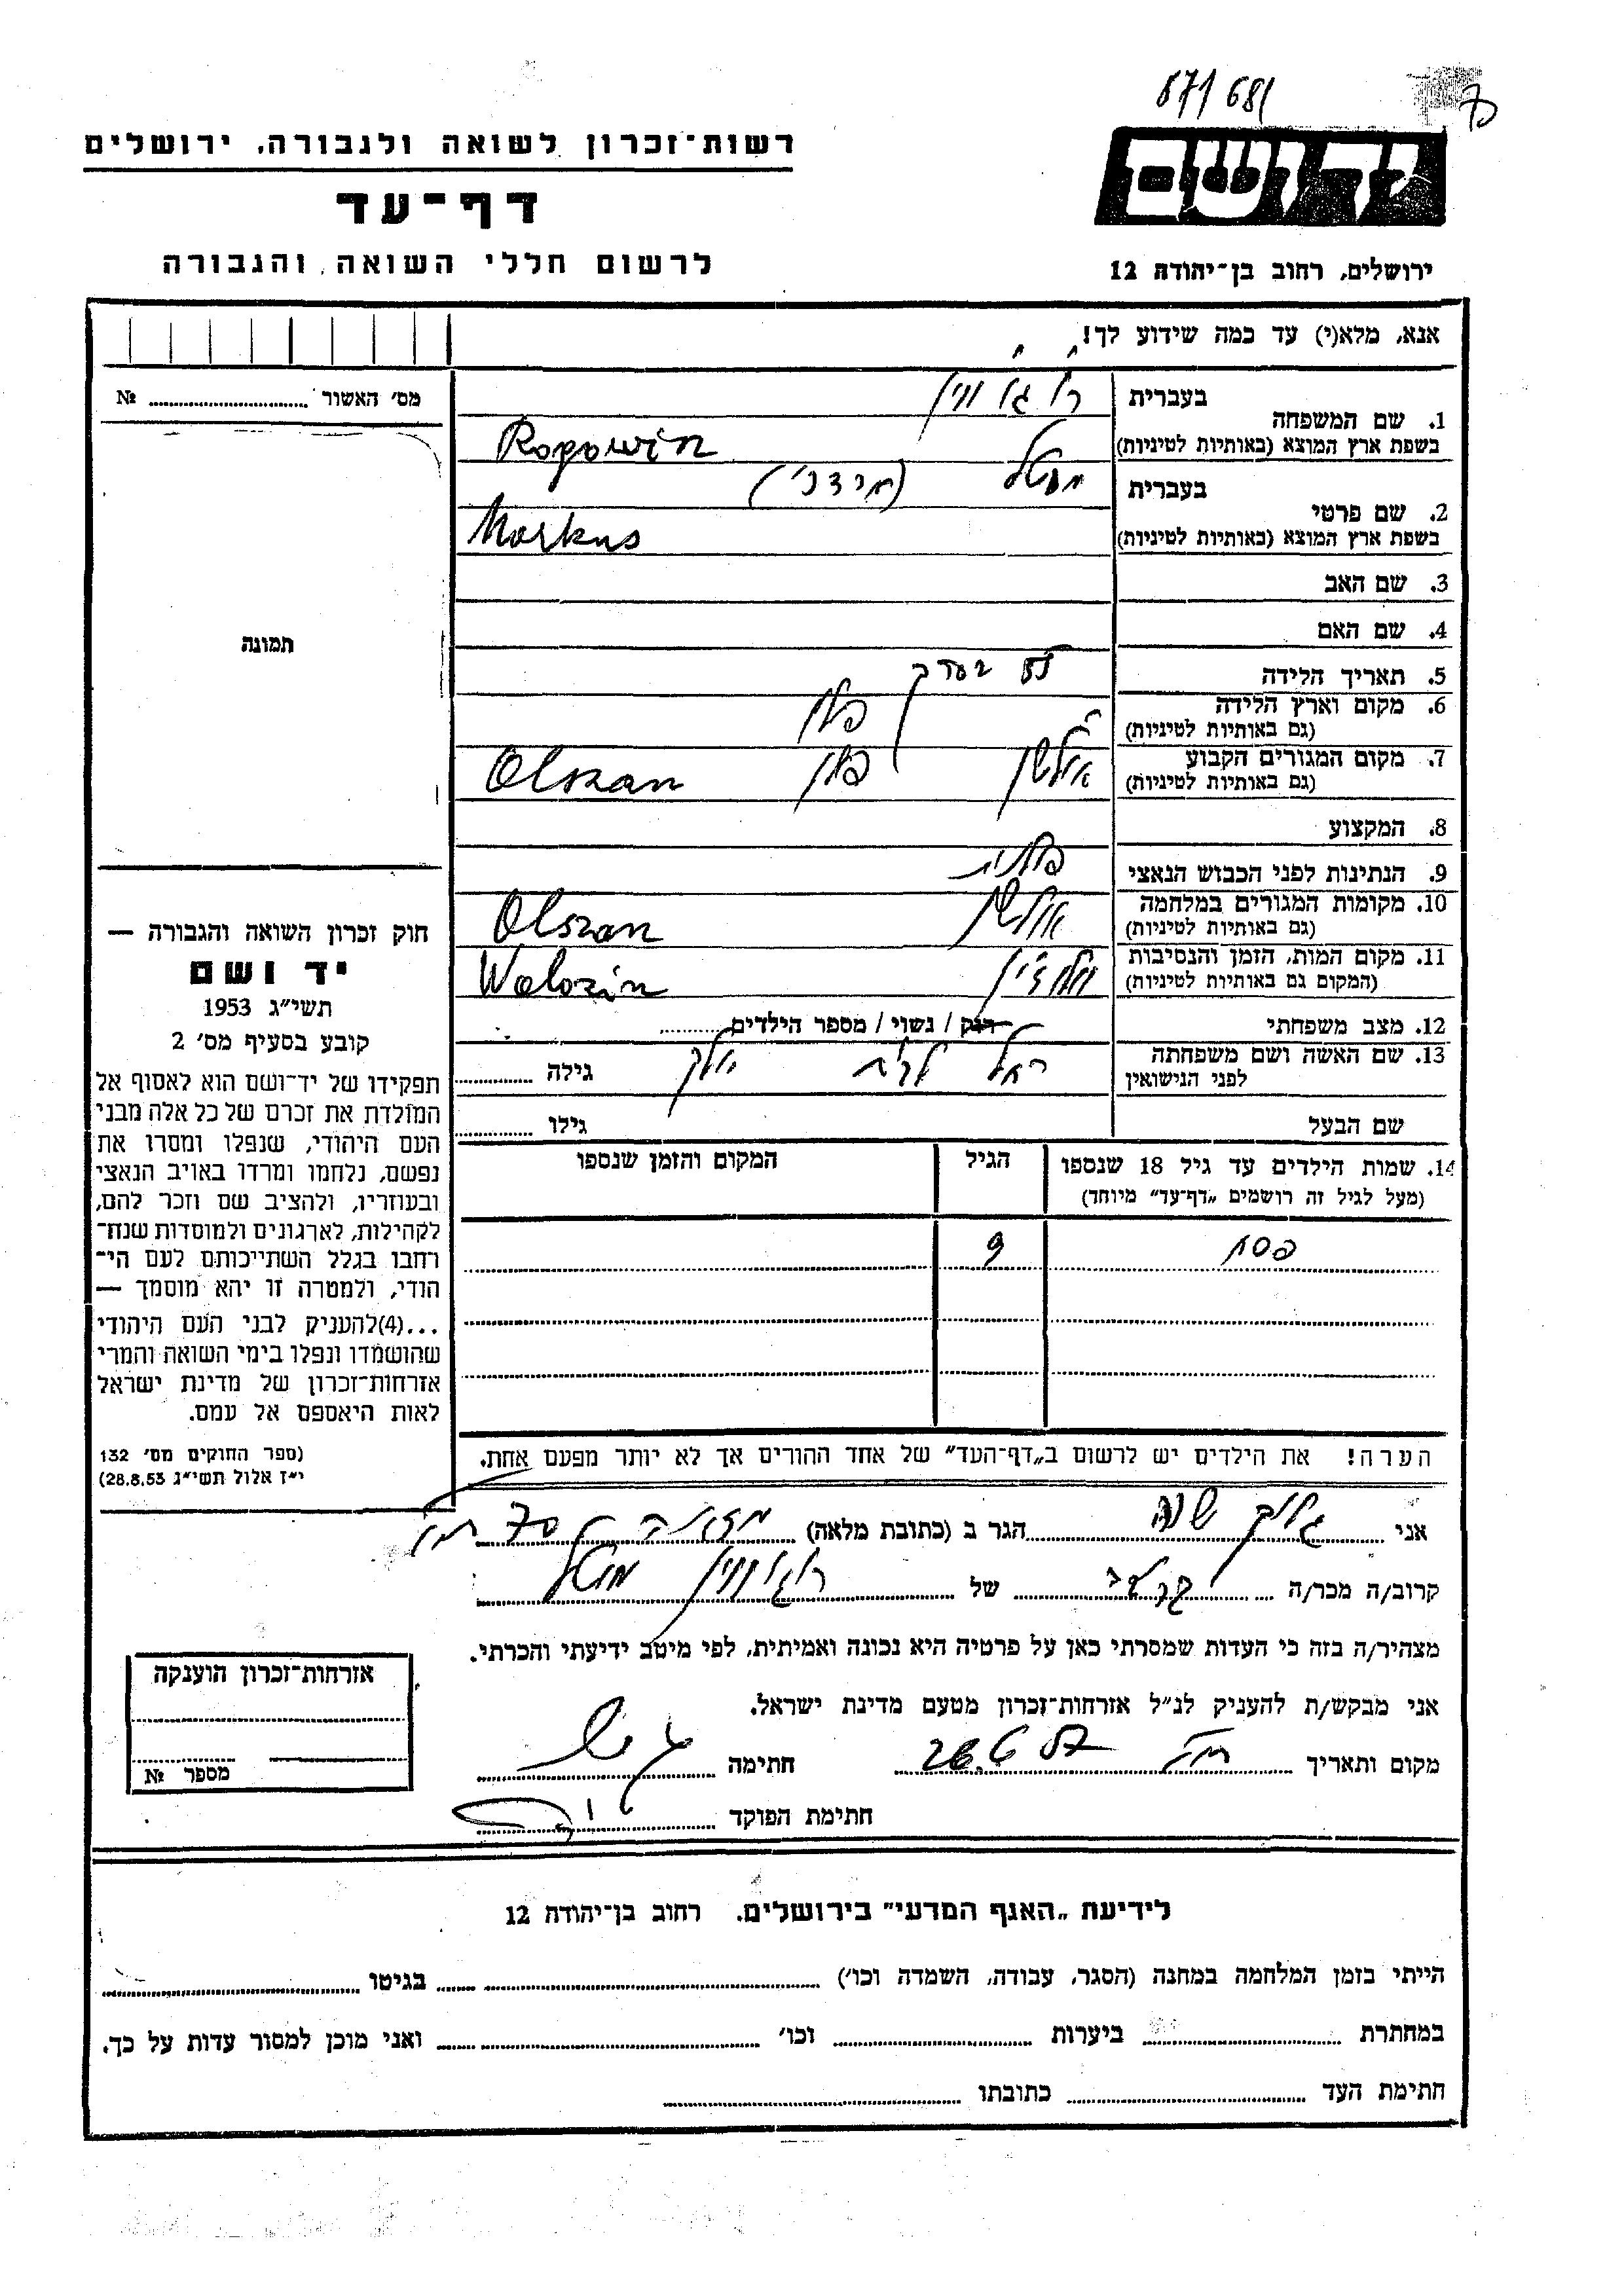 871681
רשות־זכרון לשואה ולגבורה. ירושלים
יד ושם
דף־עד
לרשום חללי השואה והגבורה
ירושלים. רחוב בן־יהודה 12
אנא. מלא(י) עד כמה שידוע לך!
1. שם המשפחה בעברית רוגובין
בשפת ארץ המוצא (באותיות לטיניות) Rogowin
2. שם פרטי בעברית מוטל
בשפת ארץ המוצא (באותיות לטיניות) Markus
3. שם האב
4. שם האם
5. תאריך הלידה
6. מקום וארץ הלידה פולין
(גם באותיות לטיניות)
7. מקום המגורים הקבוע אולשן פולין Olszan
(גם באותיות לטיניות)
8. המקצוע
9. הנתינות לפני הכבוש הנאצי פולנית
10. מקומות המגורים במלחמה אולשן Olszan
(גם באותיות לטיניות)
11. מקום המות. הזמן והנסיבות וולוז'ין Wolozin
(המקום גם באותיות לטיניות)
12. מצב משפחתי רוק / נשוי / מספר הילדים
13. שם האשה ושם משפחתה רחל לבית גילה
לפני הנישואין
שם הבעל גילו
14. שמות הילדים עד גיל 18 שנספו הגיל המקום והזמן שנספו
(מעל לגיל זה רושמים „דף־עד" מיוחד)
9
הערה! את הילדים יש לרשום ב„דף־העד" של אחד ההורים אך לא יותר מפעם אחת.
מס' האשור №
תמונה
חוק זכרון השואה והגבורה —
יד ושם
תשי"ג 1953
קובע בסעיף מס' 2
תפקידו של יד־ושם הוא לאסוף אל
המולדת את זכרם של כל אלה מבני
העם היהודי, שנפלו ומסרו את
נפשם, נלחמו ומרדו באויב הנאצי
ובעוזריו, ולהציב שם וזכר להם,
לקהילות, לארגונים ולמוסדות שנח־
רחבו בגלל השתייכותם לעם הי־
הודי, ולמטרה זו יהא מוסמך —
...(4)להעניק לבני העם היהודי
שהושמדו ונפלו בימי השואה והמרי
אזרחות־זכרון של מדינת ישראל
לאות היאספם אל עמם.
(ספר החוקים מס' 132
י"ז אלול תשי"ג 28.8.53)
אני הגר ב (כתובת מלאה) 70
קרוב/ה מכר/ה של רוגובין מוטל
מצהיר/ה בזה כי העדות שמסרתי כאן על פרטיה היא נכונה ואמיתית, לפי מיטב ידיעתי והכרתי.
אני מבקש/ת להעניק לנ"ל אזרחות־זכרון מטעם מדינת ישראל.
מקום ותאריך 28.6.57 חתימה
חתימת הפוקד
אזרחות־זכרון הוענקה
מספר №
לידיעת „האגף המדעי" בירושלים. רחוב בן־יהודה 12
הייתי בזמן המלחמה במחנה (הסגר, עבודה, השמדה וכו') בגיטו
במחתרת ביערות וכו' ואני מוכן למסור עדות על כך.
חתימת העד כתובתו